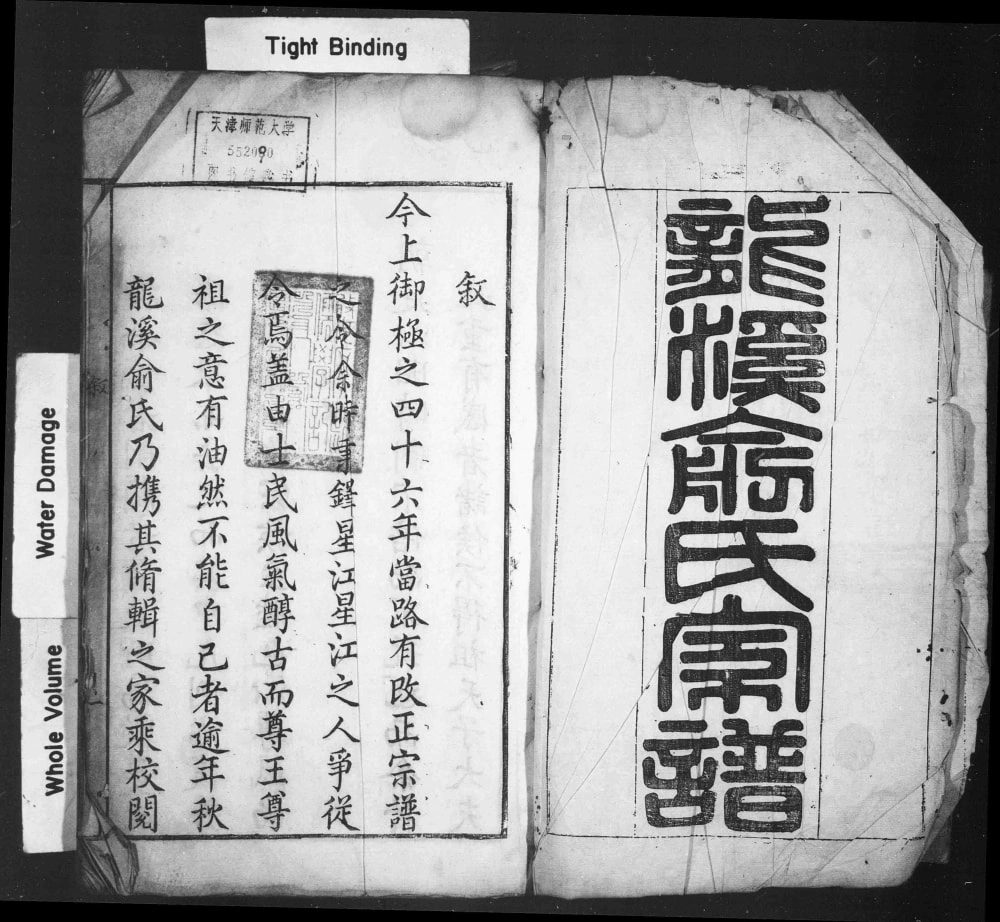 Tight Binding
Water Damage
Whole Volume
天津师范大学
龍溪俞氏宗譜
敘
今上御極之四十六年當路有改正宗譜
之令余時秉鐸星江星江之人爭從
令焉盖由士民風氣醇古而尊王尊
祖之意有油然不能自已者逾年秋
龍溪俞氏乃携其脩輯之家乘校閱
敘